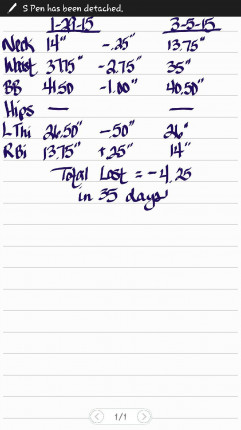 S Pen has been detached.
1-29-15 3-5-15
Neck 14" -.25" 13.75"
Waist 37.75" -2.75" 35"
BB 41.50 -1.00" 40.50"
Hips — —
L Thi 26.50" -.50" 26"
R Bi 13.75" +.25" 14"
Total Lost = -4.25
in 35 days
1/1